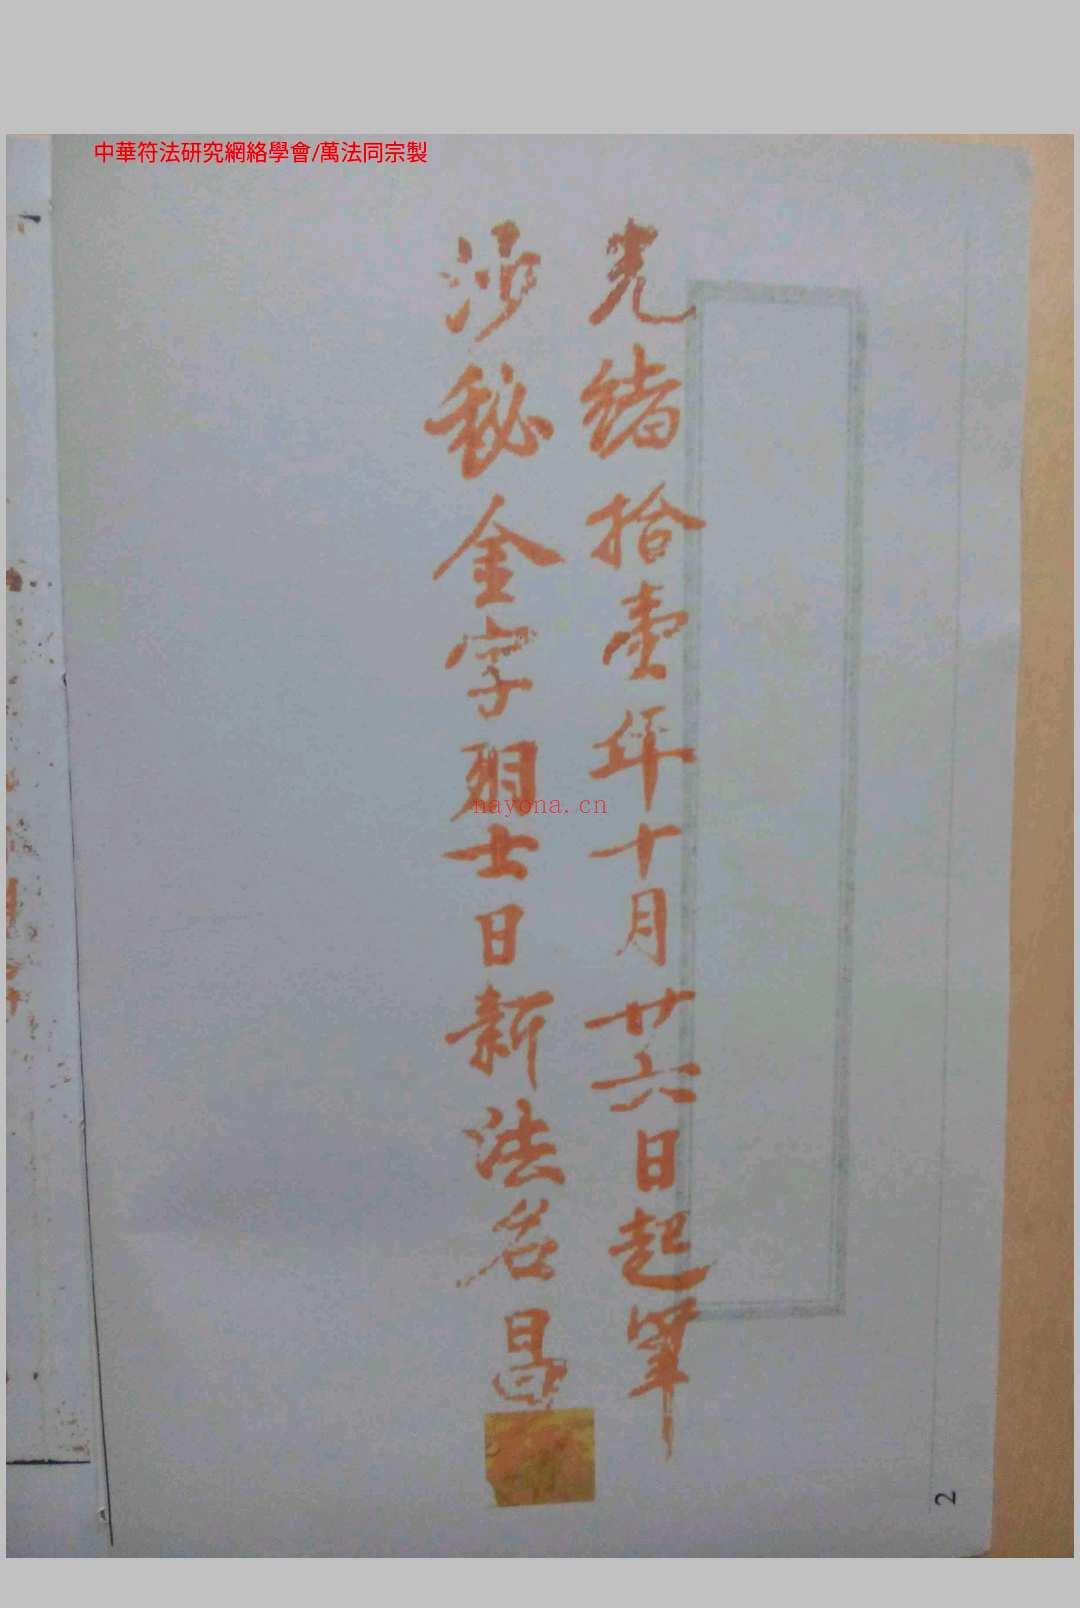 中華符法研究網絡學會/萬法同宗製
光緒拾壹年十月廿六日起筆
沙秘金字羽士日新法名昌
nayona.cn
2